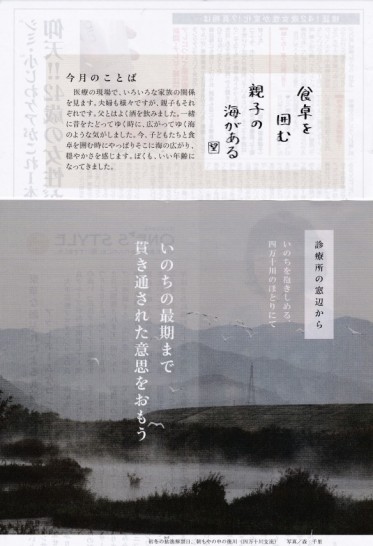 今月のことば
医療の現場で、いろいろな家族の関係
を見ます。夫婦も様々ですが、親子もそれ
ぞれです。父とはよく酒を飲みました。一緒
に昔をたどってゆく時に、広がってゆく海
のような気がしました。今、子どもたちと食
卓を囲む時にやっぱりそこに海の広がり、
穏やかさを感じます。ぼくも、いい年齢に
なってきました。
食卓を
囲む
親子の
海がある
望
診療所の窓辺から
いのちを抱きしめる、
四万十川のほとりにて
いのちの最期まで
貫き通された意思をおもう